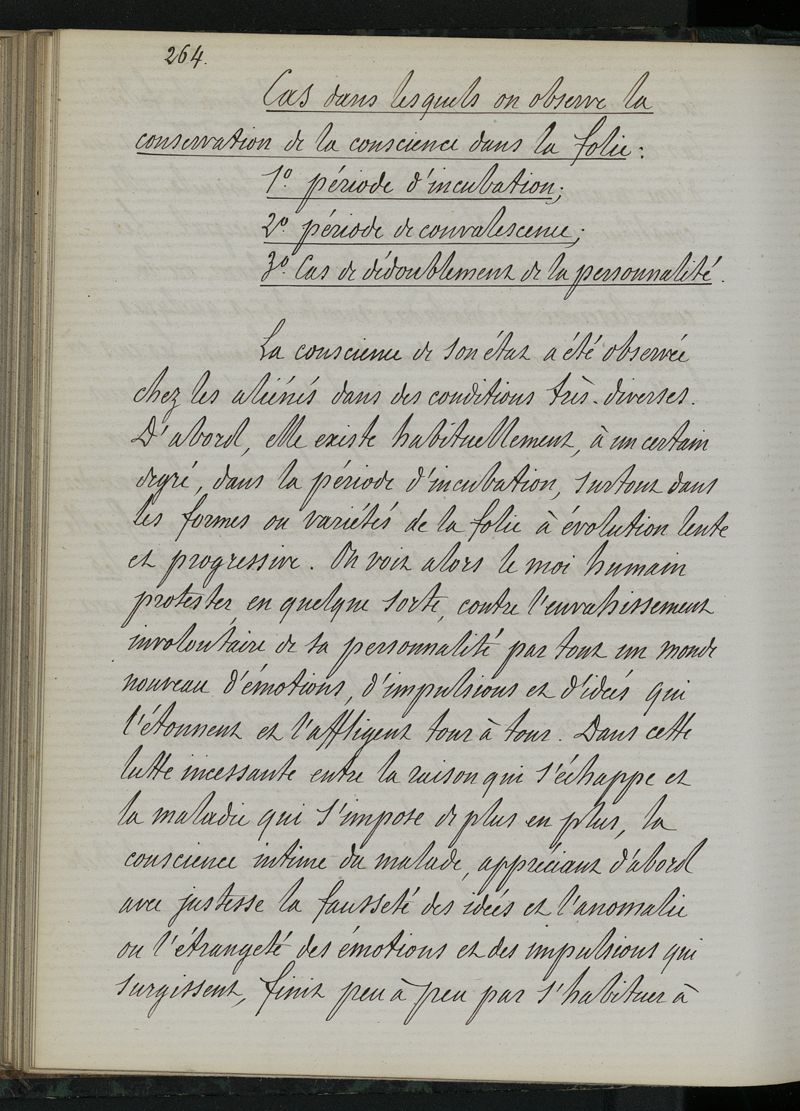 264.
Cas dans lesquels on observe la
conservation de la conscience dans la folie :
1º période d'incubation ;
2º période de convalescence ;
3º Cas de dédoublement de la personnalité.
La conscience de son état a été observée
chez les aliénés dans des conditions très-diverses.
D'abord, elle existe habituellement, à un certain
degré, dans la période d'incubation, surtout dans
les formes ou variétés de la folie à évolution lente
et progressive. On voit alors le moi humain
protester en quelque sorte, contre l'envahissement
involontaire de sa personnalité par tout un monde
nouveau d'émotions, d'impulsions et d'idées qui
l'étonnent et l'affligent tour à tour. Dans cette
lutte incessante entre la raison qui s'échappe et
la maladie qui s'impose de plus en plus, la
conscience intime du malade, appréciant d'abord
avec justesse la fausseté des idées et l'anomalie
ou l'étrangeté des émotions et des impulsions qui
surgissent, finit peu à peu par s'habituer à